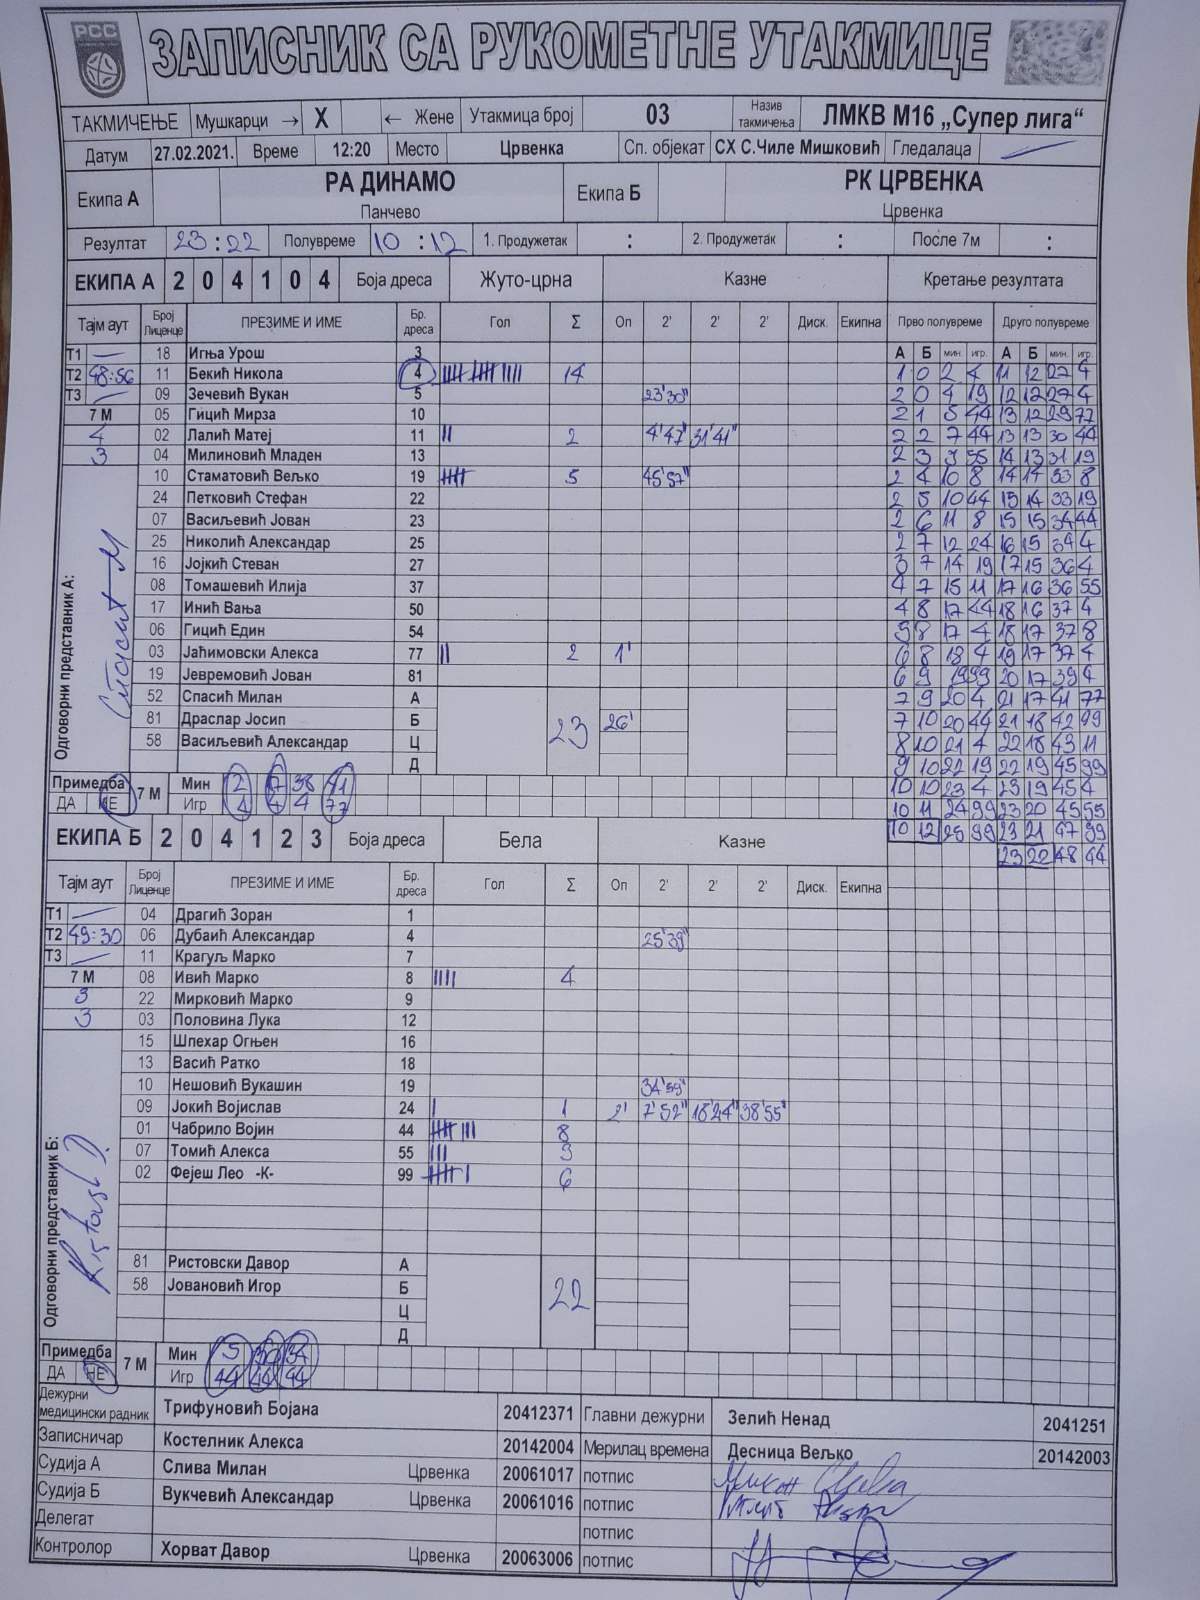 РСС
ЗАПИСНИК СА РУКОМЕТНЕ УТАКМИЦЕ
ТАКМИЧЕЊЕ Мушкарци → X ← Жене Утакмица број 03 Назив такмичења ЛМКВ М16 „Супер лига“
Датум 27.02.2021. Време 12:20 Место Црвенка Сп. објекат СХ С.Чиле Мишковић Гледалаца
Екипа А РА ДИНАМО Екипа Б РК ЦРВЕНКА
Панчево Црвенка
Резултат 23:22 Полувреме 10:12 1. Продужетак : 2. Продужетак : После 7м :
ЕКИПА А 2 0 4 1 0 4 Боја дреса Жуто-црна Казне Кретање резултата
Тајм аут Број Лиценце ПРЕЗИМЕ И ИМЕ Бр. дреса Гол Σ Оп 2' 2' 2' Диск. Екипна Прво полувреме Друго полувреме
Т1 18 Игња Урош 3 А Б мин. игр. А Б мин. игр.
Т2 48:56 11 Бекић Никола 4 14 1 0 2 4 11 12 27 4
Т3 09 Зечевић Вукан 5 23'30" 2 0 4 19 12 12 27 4
7 М 05 Гицић Мирза 10 2 1 5 44 13 12 29 77
4 02 Лалић Матеј 11 2 4'47" 31'41" 2 2 7 44 13 13 30 44
3 04 Милиновић Младен 13 2 3 9 55 14 13 31 19
10 Стаматовић Вељко 19 5 45'37" 2 4 10 8 14 14 33 8
24 Петковић Стефан 22 2 5 10 44 15 14 33 19
07 Васиљевић Јован 23 2 6 11 8 15 15 34 44
25 Николић Александар 25 2 7 12 24 16 15 34 4
16 Јојкић Стеван 27 3 7 14 19 17 15 36 4
08 Томашевић Илија 37 4 7 15 11 17 16 36 55
17 Инић Вања 50 4 8 17 44 18 16 37 4
06 Гицић Един 54 5 8 17 4 18 17 37 8
03 Јаћимовски Алекса 77 2 1' 6 8 18 4 19 17 37 4
19 Јевремовић Јован 81 6 9 19 99 20 17 39 4
52 Спасић Милан А 7 9 20 4 21 17 41 77
81 Драслар Јосип Б 23 26' 7 10 20 44 21 18 42 99
58 Васиљевић Александар Ц 8 10 21 4 22 18 43 11
Д 9 10 22 19 22 19 45 99
Одговорни представник А:
Примедба 7 М Мин 2 17 38 41 10 10 23 4 23 19 45 4
ДА НЕ Игр 4 4 4 77 10 11 24 99 23 20 45 55
ЕКИПА Б 2 0 4 1 2 3 Боја дреса Бела Казне 10 12 25 99 23 21 47 99
23 22 48 44
Тајм аут Број Лиценце ПРЕЗИМЕ И ИМЕ Бр. дреса Гол Σ Оп 2' 2' 2' Диск. Екипна
Т1 04 Драгић Зоран 1
Т2 49:30 06 Дубаић Александар 4 25'39"
Т3 11 Крагуљ Марко 7
7 М 08 Ивић Марко 8 4
3 22 Мирковић Марко 9
3 03 Половина Лука 12
15 Шпехар Огњен 16
13 Васић Ратко 18
10 Нешовић Вукашин 19 34'59"
09 Јокић Војислав 24 1 2' 7'52" 18'24" 38'55"
01 Чабрило Војин 44 8
07 Томић Алекса 55 3
02 Фејеш Лео -К- 99 6
81 Ристовски Давор А
58 Јовановић Игор Б 22
Ц
Д
Одговорни представник Б:
Примедба 7 М Мин 5 30 34
ДА НЕ Игр 44 44 44
Дежурни медицински радник Трифуновић Бојана 20412371 Главни дежурни Зелић Ненад 2041251
Записничар Костелник Алекса 20142004 Мерилац времена Десница Вељко 20142003
Судија А Слива Милан Црвенка 20061017 потпис
Судија Б Вукчевић Александар Црвенка 20061016 потпис
Делегат потпис
Контролор Хорват Давор Црвенка 20063006 потпис